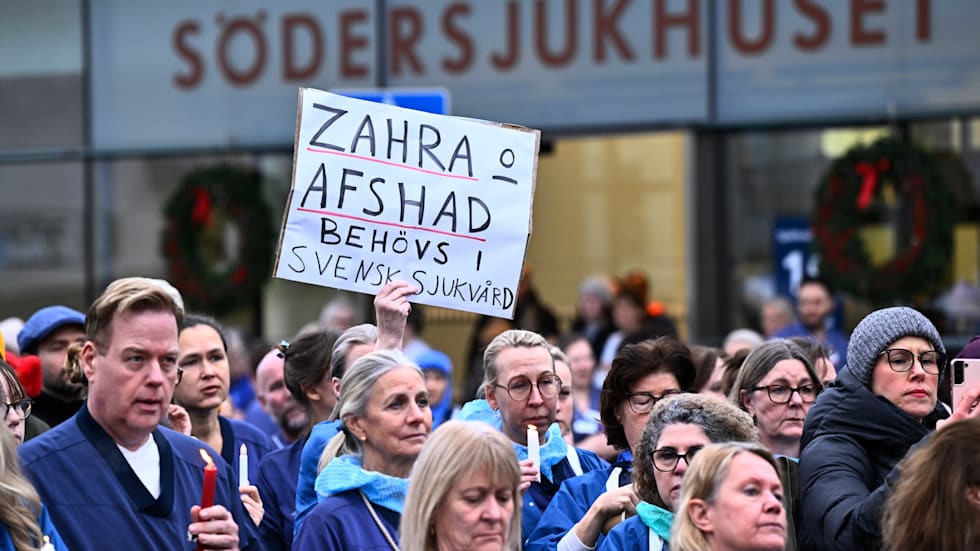 SÖDERSJUKHUSET
ZAHRA o
AFSHAD
BEHÖVS I
SVENSK SJUKVÅRD